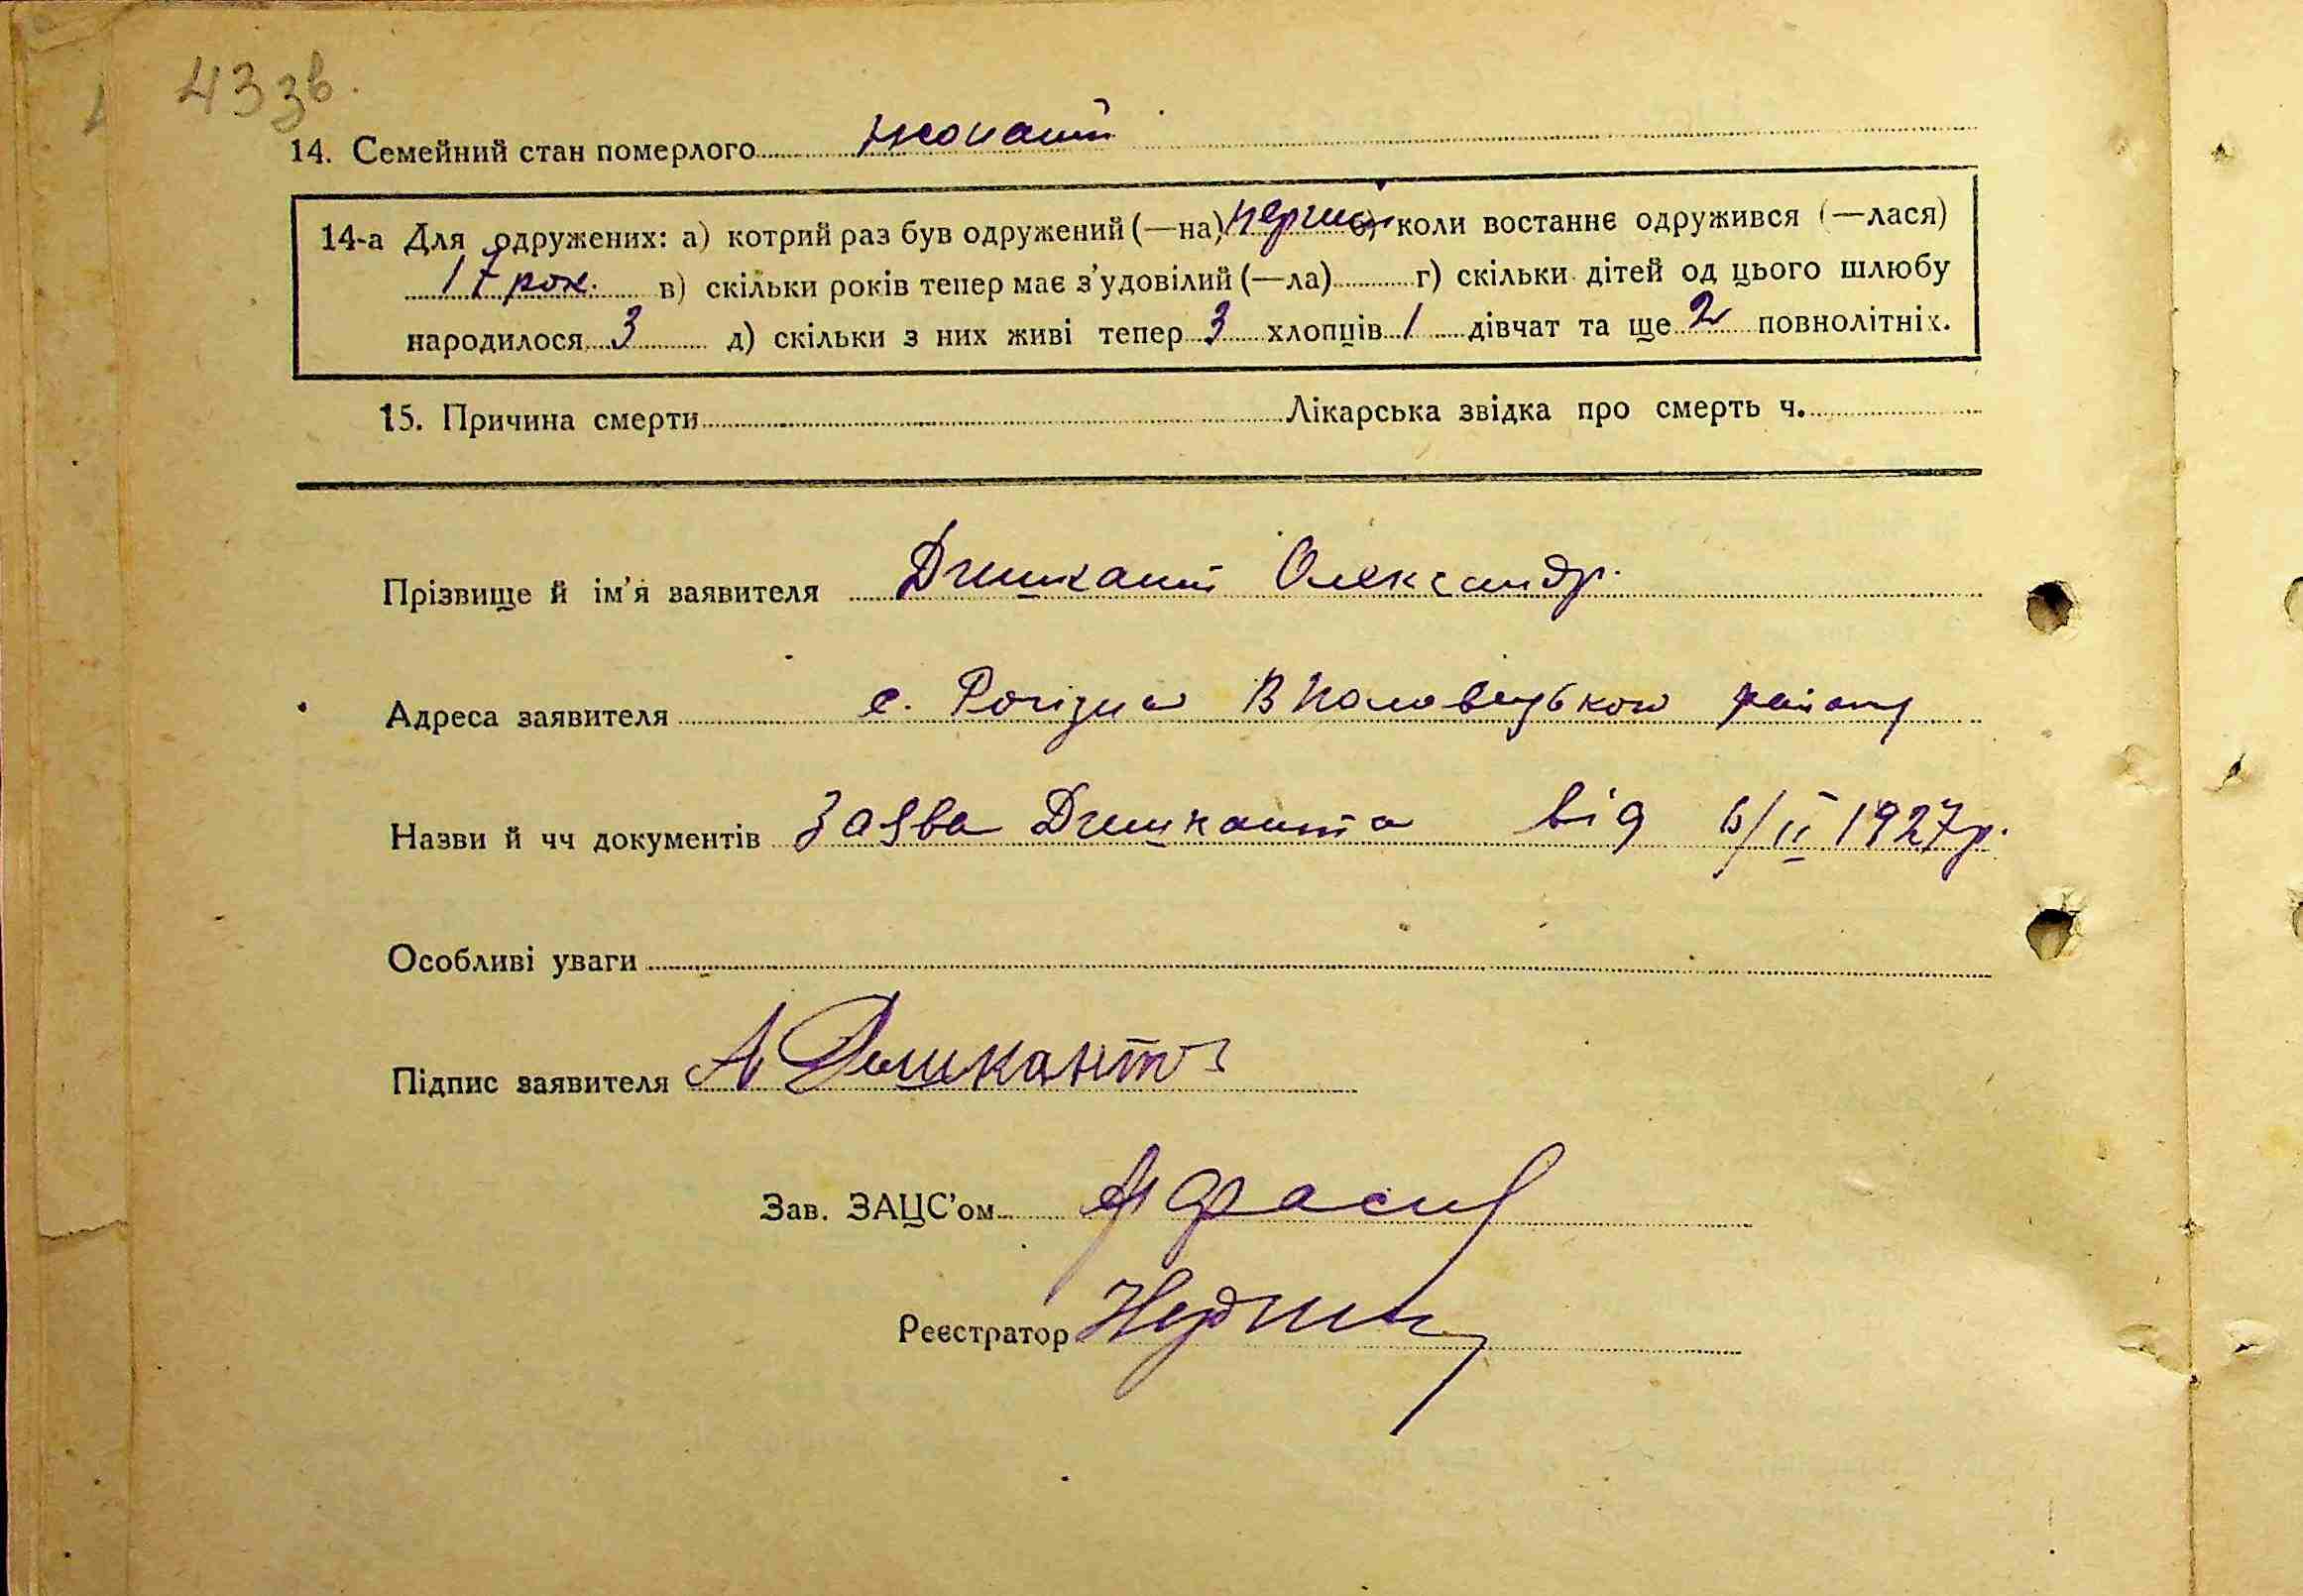 43 зв.
14. Семейний стан померлого жонатий
14-а Для одружених: а) котрий раз був одружений (—на) перший б) коли востаннє одружився (—лася)
17 рок. в) скільки років тепер має з'удовілий (—ла) г) скільки дітей од цього шлюбу
народилося 3 д) скільки з них живі тепер 3 хлопців 1 дівчат та ще 2 повнолітніх.
15. Причина смерти Лікарська звідка про смерть ч.
Прізвище й ім'я заявителя Дишкант Олександр.
Адреса заявителя с. Рогізна В Половецького району
Назви й чч документів Заява Дишканта від 6/II 1927 р.
Особливі уваги
Підпис заявителя А Дишкантъ
Зав. ЗАЦС'ом
Реєстратор